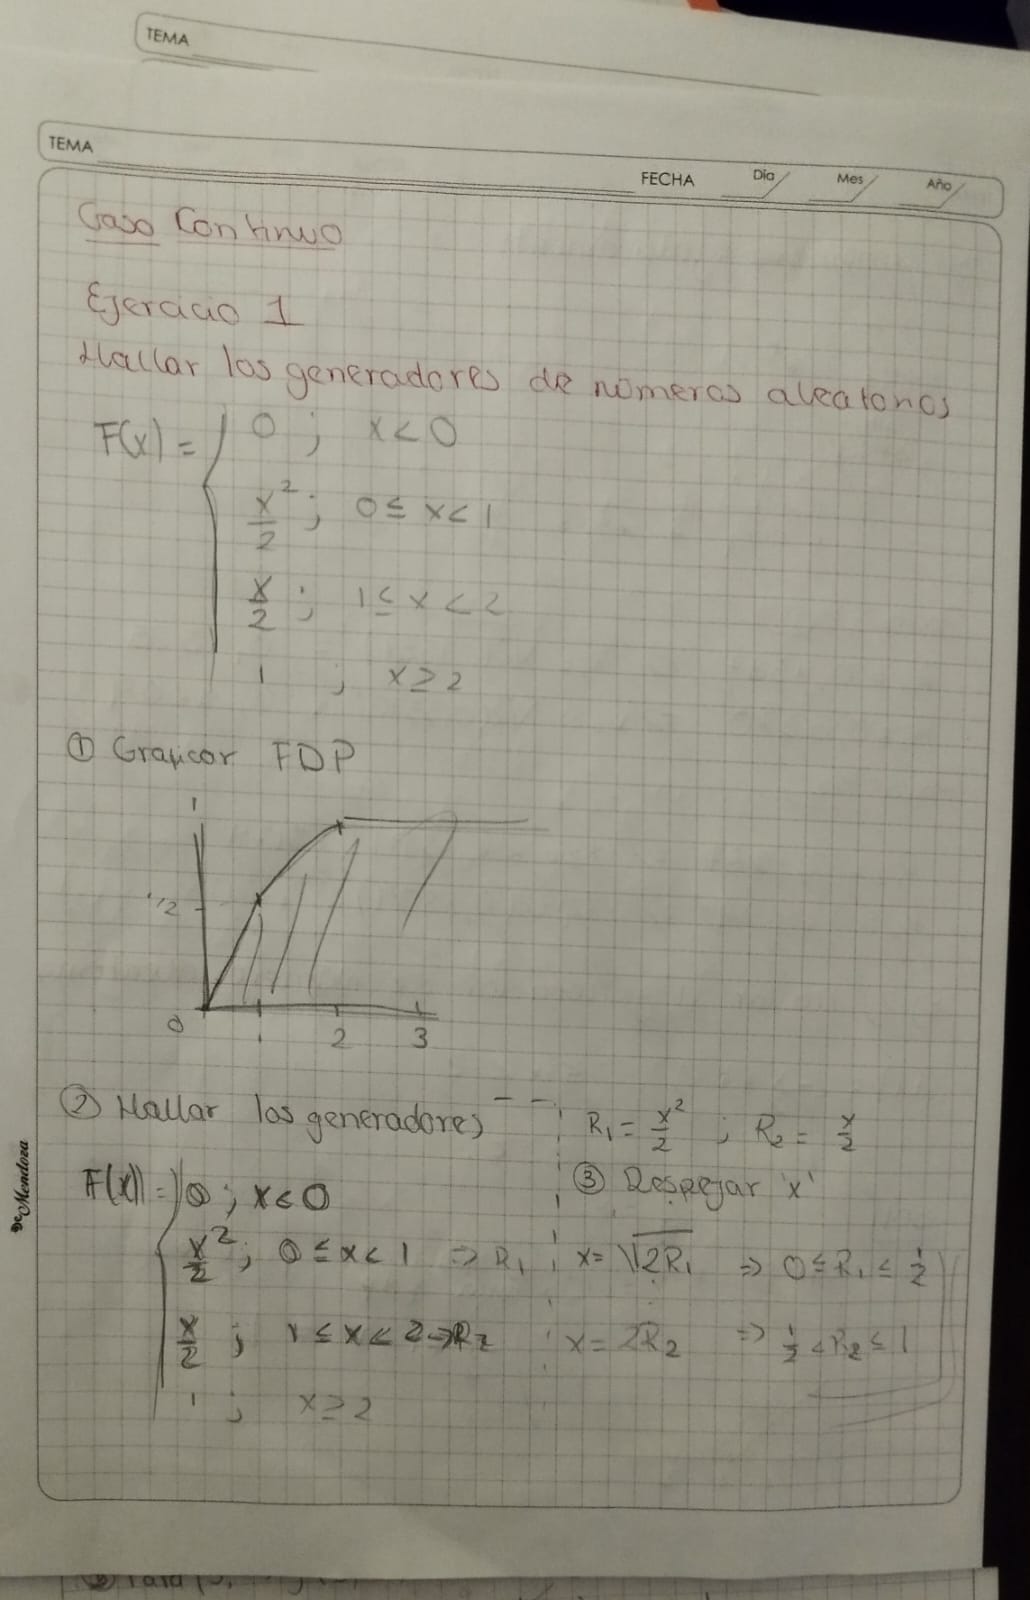 TEMA
TEMA
FECHA Día Mes Año
Caso Continuo
Ejercicio 1
Hallar los generadores de números aleatorios
F(x) = 0 ; x < 0
x²/2 ; 0 ≤ x < 1
x/2 ; 1 ≤ x < 2
1 ; x ≥ 2
① Graficar FDP
1
1/2
0 1 2 3
② Hallar los generadores
F(x) = 0 ; x < 0
x²/2 ; 0 ≤ x < 1 ⇒ R₁
x/2 ; 1 ≤ x < 2 ⇒ R₂
1 ; x ≥ 2
R₁ = x²/2 ; R₂ = x/2
③ Despejar 'x'
x = √2R₁ ⇒ 0 ≤ R₁ ≤ 1/2
x = 2R₂ ⇒ 1/2 < R₂ ≤ 1
De Mendoza